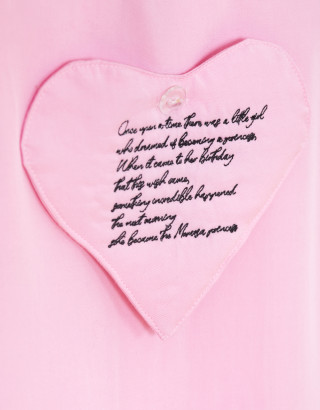 Once upon a time there was a little girl
who dreamed of becoming a princess,
When it came to her birthday
that this wish came,
something incredible happened
the next morning
she became the princess